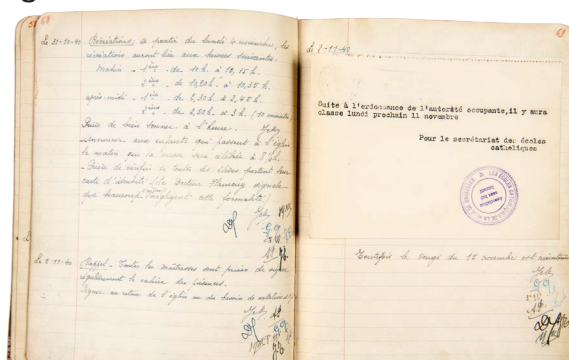 68
Le 31-10-40 Récréations: à partir du lundi 4 novembre, les
récréations auront lieu aux heures suivantes:
Matin - 1ère - de 10h. à 10,15h.
2ème - de 10,20h. à 10,35h.
après-midi - 1ère - de 2,30h. à 2,45h.
2ème - de 2,50h. à 3h. (10 minutes)
Prière de bien sonner à l'heure.
Annoncer aux enfants qui passent à l'église
le matin que la messe sera célébrée à 8h.
Prière de vérifier si toutes les élèves portent leur
carte d'identité (le Docteur signale
que beaucoup négligent cette formalité)
Le 2-11-40 Rappel - Toutes les maîtresses sont priées de signer
régulièrement le cahier des présences.
69
Le 7-11-40
Suite à l'ordonnance de l'autorité occupante, il y aura
classe lundi prochain 11 novembre
Pour le secrétariat des écoles
catholiques
Toutefois le congé du 12 novembre est maintenu